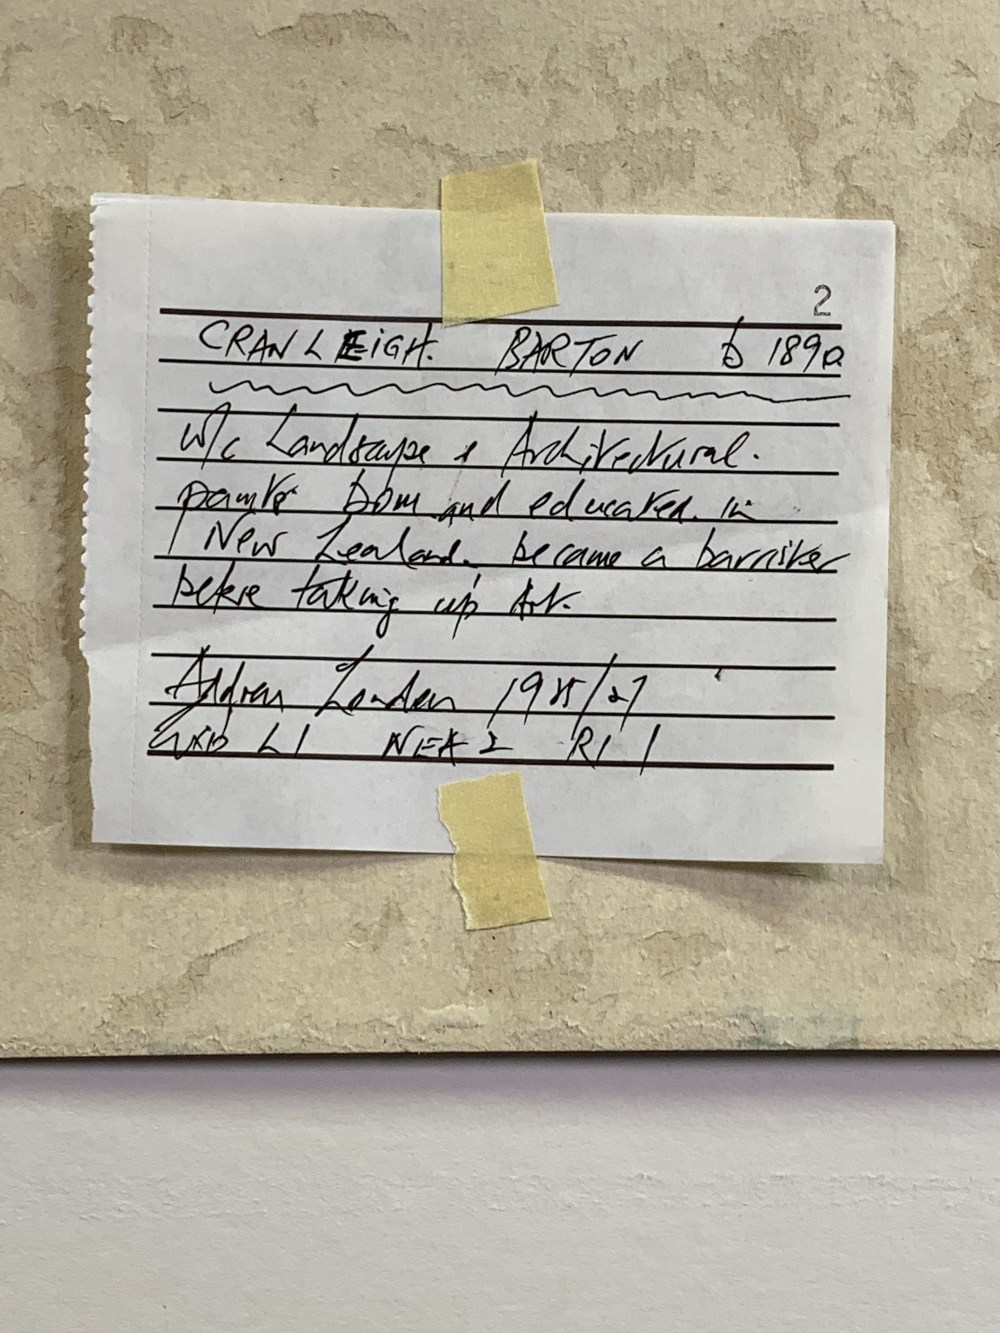 2
CRANLEIGH. BARTON b 1890
w/c Landscape & Architectural.
painter born and educated. in
New Zealand. became a barrister
before taking up Art.
Address London 1925/27
EXHD L 1 NEA 2 RI 1